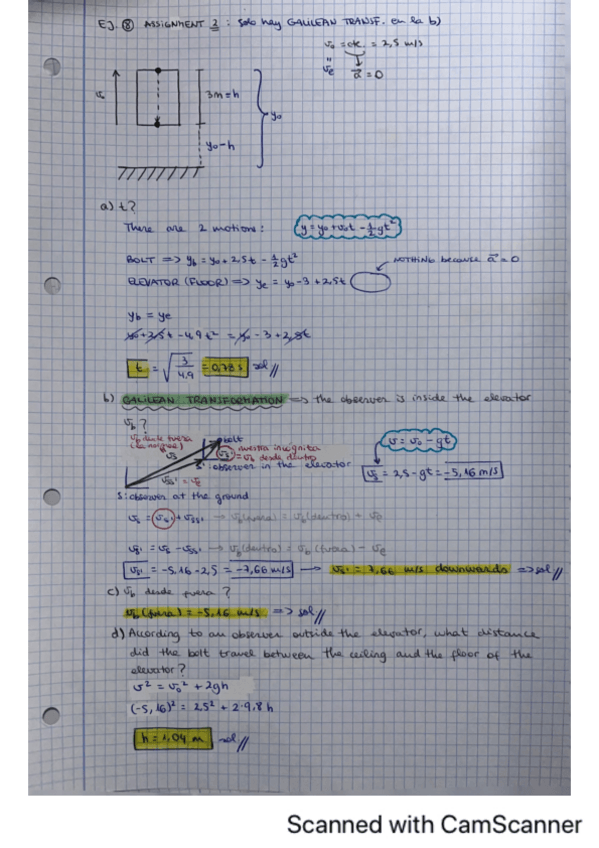 EJ. ⑧ ASSIGNMENT 2 : solo hay GALILEAN TRANSF. en la b)
v₀ = cte. = 2,5 m/s
"
vₑ
a⃗ = 0
v₀
3m = h
y₀
y₀-h
a) t?
There are 2 motions:
y = y₀ + v₀t - 1/2 gt²
BOLT => y_b = y₀ + 2,5t - 1/2 gt²
NOTHING because a⃗ = 0
ELEVATOR (FLOOR) => yₑ = y₀ - 3 + 2,5t
y_b = yₑ
y₀ + 2,5t - 4,9t² = y₀ - 3 + 2,5t
t = √(3/4.9) = 0,78 s sol //
b) GALILEAN TRANSFORMATION => the observer is inside the elevator
v_b?
v_b desde fuera
bolt
nuestra incógnita
= v_b desde dentro
v = v₀ - gt
S': observer in the elevator
v_s = 2,5 - gt = -5,16 m/s
v_ss' = vₑ
S: observer at the ground
v_s = v_s' + v_ss' → v_b (fuera) = v_b (dentro) + vₑ
v_s' = v_s - v_ss' → v_b (dentro) = v_b (fuera) - vₑ
v_s' = -5,16 - 2,5 = -7,66 m/s → v_s' = 7,66 m/s downwards => sol //
c) v_b desde fuera ?
v_b (fuera) = -5,16 m/s => sol //
d) Acording to an observer outside the elevator, what distance
did the bolt travel between the ceiling and the floor of the
elevator?
v² = v₀² + 2gh
(-5,16)² = 2,5² + 2·9,8 h
h = 1,04 m sol //
Scanned with CamScanner